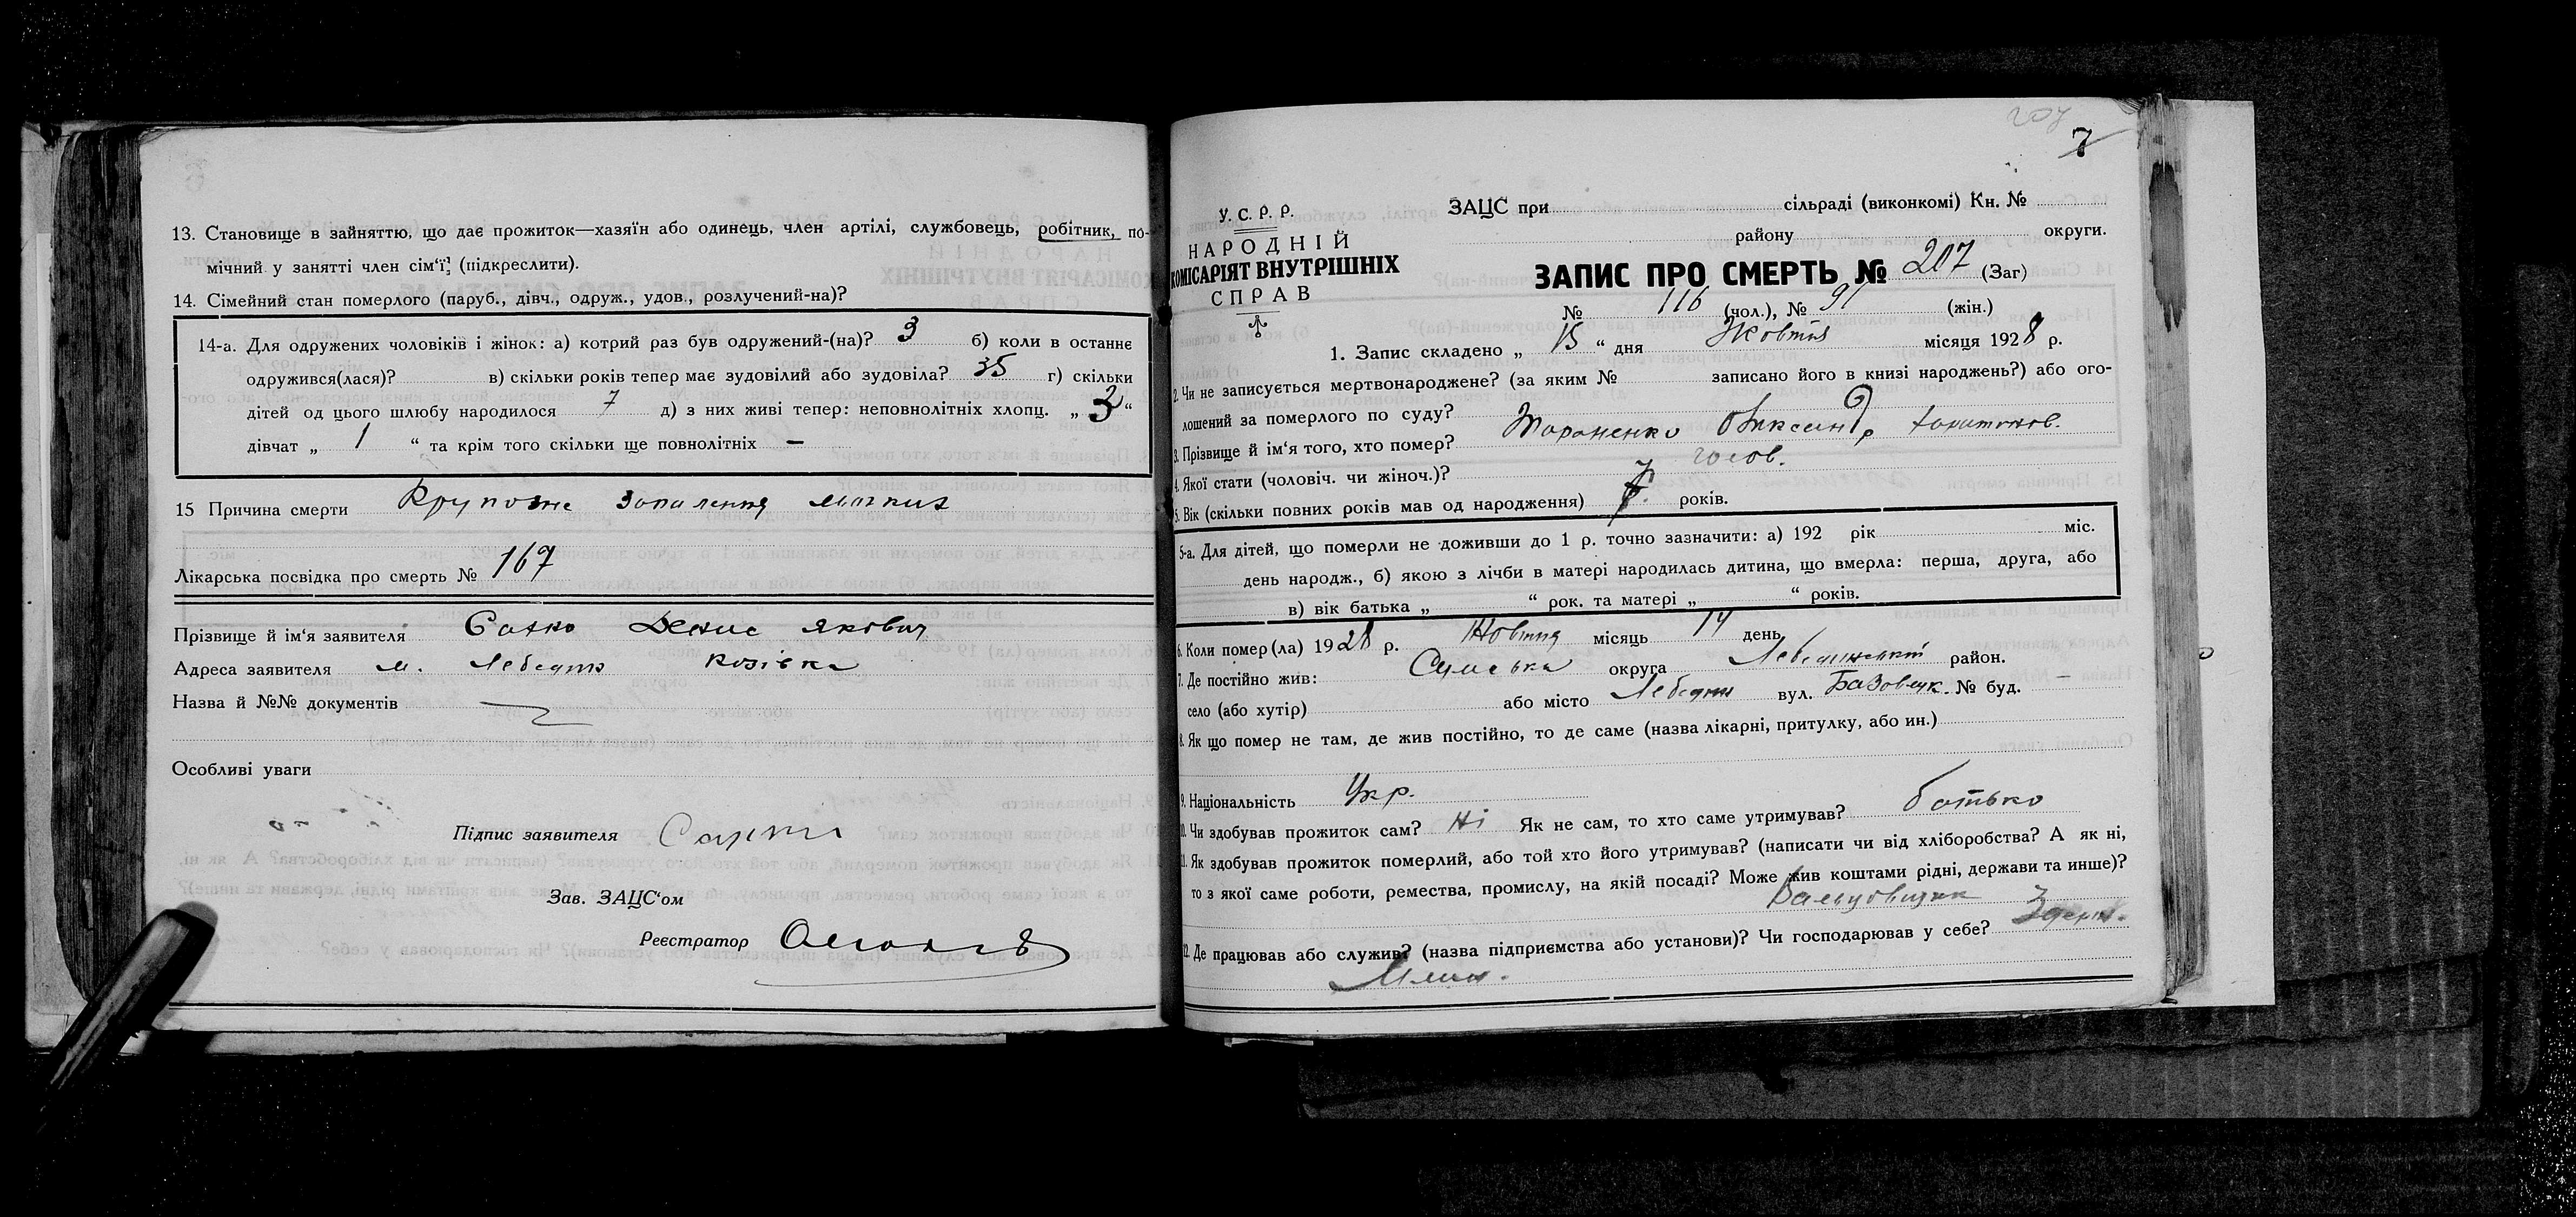 13. Становище в зайняттю, що дає прожиток—хазяїн або одинець, член артілі, службовець, робітник, по-
мічний у занятті член сім'ї (підкреслити).
14. Сімейний стан померлого (паруб., дівч., одруж., удов., розлучений-на)?
14-а. Для одружених чоловіків і жінок: а) котрий раз був одружений-(на)? 3 б) коли в останнє
одружився(лася)? в) скільки років тепер має зудовілий або зудовіла? 35 г) скільки
дітей од цього шлюбу народилося 7 д) з них живі тепер: неповнолітніх хлопц. „ 3 “
дівчат „ 1 “ та крім того скільки ще повнолітніх —
15 Причина смерти Крупозне запалення
Лікарська посвідка про смерть № 167
Прізвище й ім'я заявителя Сахно Денис Якович
Адреса заявителя м. Лебедин Козівка
Назва й №№ документів
Особливі уваги
Підпис заявителя
Зав. ЗАЦС'ом
Реєстратор
207
7
У. С. Р. Р.
НАРОДНІЙ
КОМІСАРІЯТ ВНУТРІШНІХ
СПРАВ
ЗАЦС при сільраді (виконкомі) Кн. №
району округи.
ЗАПИС ПРО СМЕРТЬ № 207 (Заг)
№ 116 (чол.), № 91 (жін.)
1. Запис складено „ 15 “ дня Жовтня місяця 1928 р.
2. Чи не записується мертвонароджене? (за яким № записано його в книзі народжень?) або ого-
лошений за померлого по суду?
3. Прізвище й ім'я того, хто помер?
4. Якої стати (чоловіч. чи жіноч.)? чолов.
5. Вік (скільки повних років мав од народження) 7 років.
5-а. Для дітей, що померли не доживши до 1 р. точно зазначити: а) 192 рік міс.
день народж., б) якою з лічби в матері народилась дитина, що вмерла: перша, друга, або
в) вік батька „ “ рок. та матері „ “ років.
6. Коли помер(ла) 1928 р. Жовтня місяць 14 день
7. Де постійно жив: Сумська округа Лебединський район.
село (або хутір) або місто Лебедин вул. № буд. —
8. Як що помер не там, де жив постійно, то де саме (назва лікарні, притулку, або ин.)
9. Національність Укр.
10. Чи здобував прожиток сам? Ні Як не сам, то хто саме утримував? батько
11. Як здобував прожиток померлий, або той хто його утримував? (написати чи від хліборобства? А як ні,
то з якої саме роботи, ремества, промислу, на якій посаді? Може жив коштами рідні, держави та инше)?
Вальцовщик
12. Де працював або служив? (назва підприємства або установи)? Чи господарював у себе?
Млин.